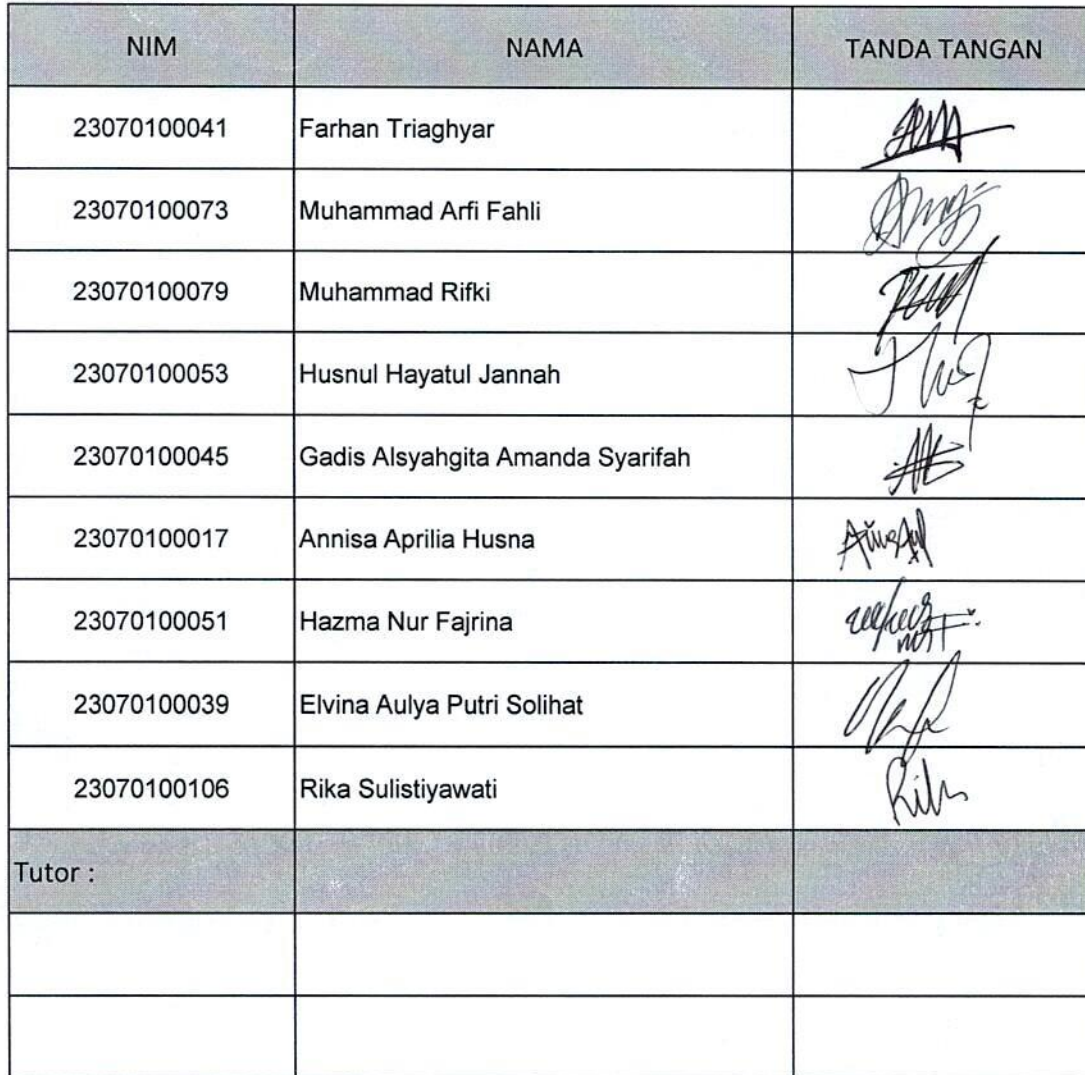 NIM NAMA TANDA TANGAN
23070100041 Farhan Triaghyar
23070100073 Muhammad Arfi Fahli
23070100079 Muhammad Rifki
23070100053 Husnul Hayatul Jannah
23070100045 Gadis Alsyahgita Amanda Syarifah
23070100017 Annisa Aprilia Husna
23070100051 Hazma Nur Fajrina
23070100039 Elvina Aulya Putri Solihat
23070100106 Rika Sulistiyawati
Tutor :